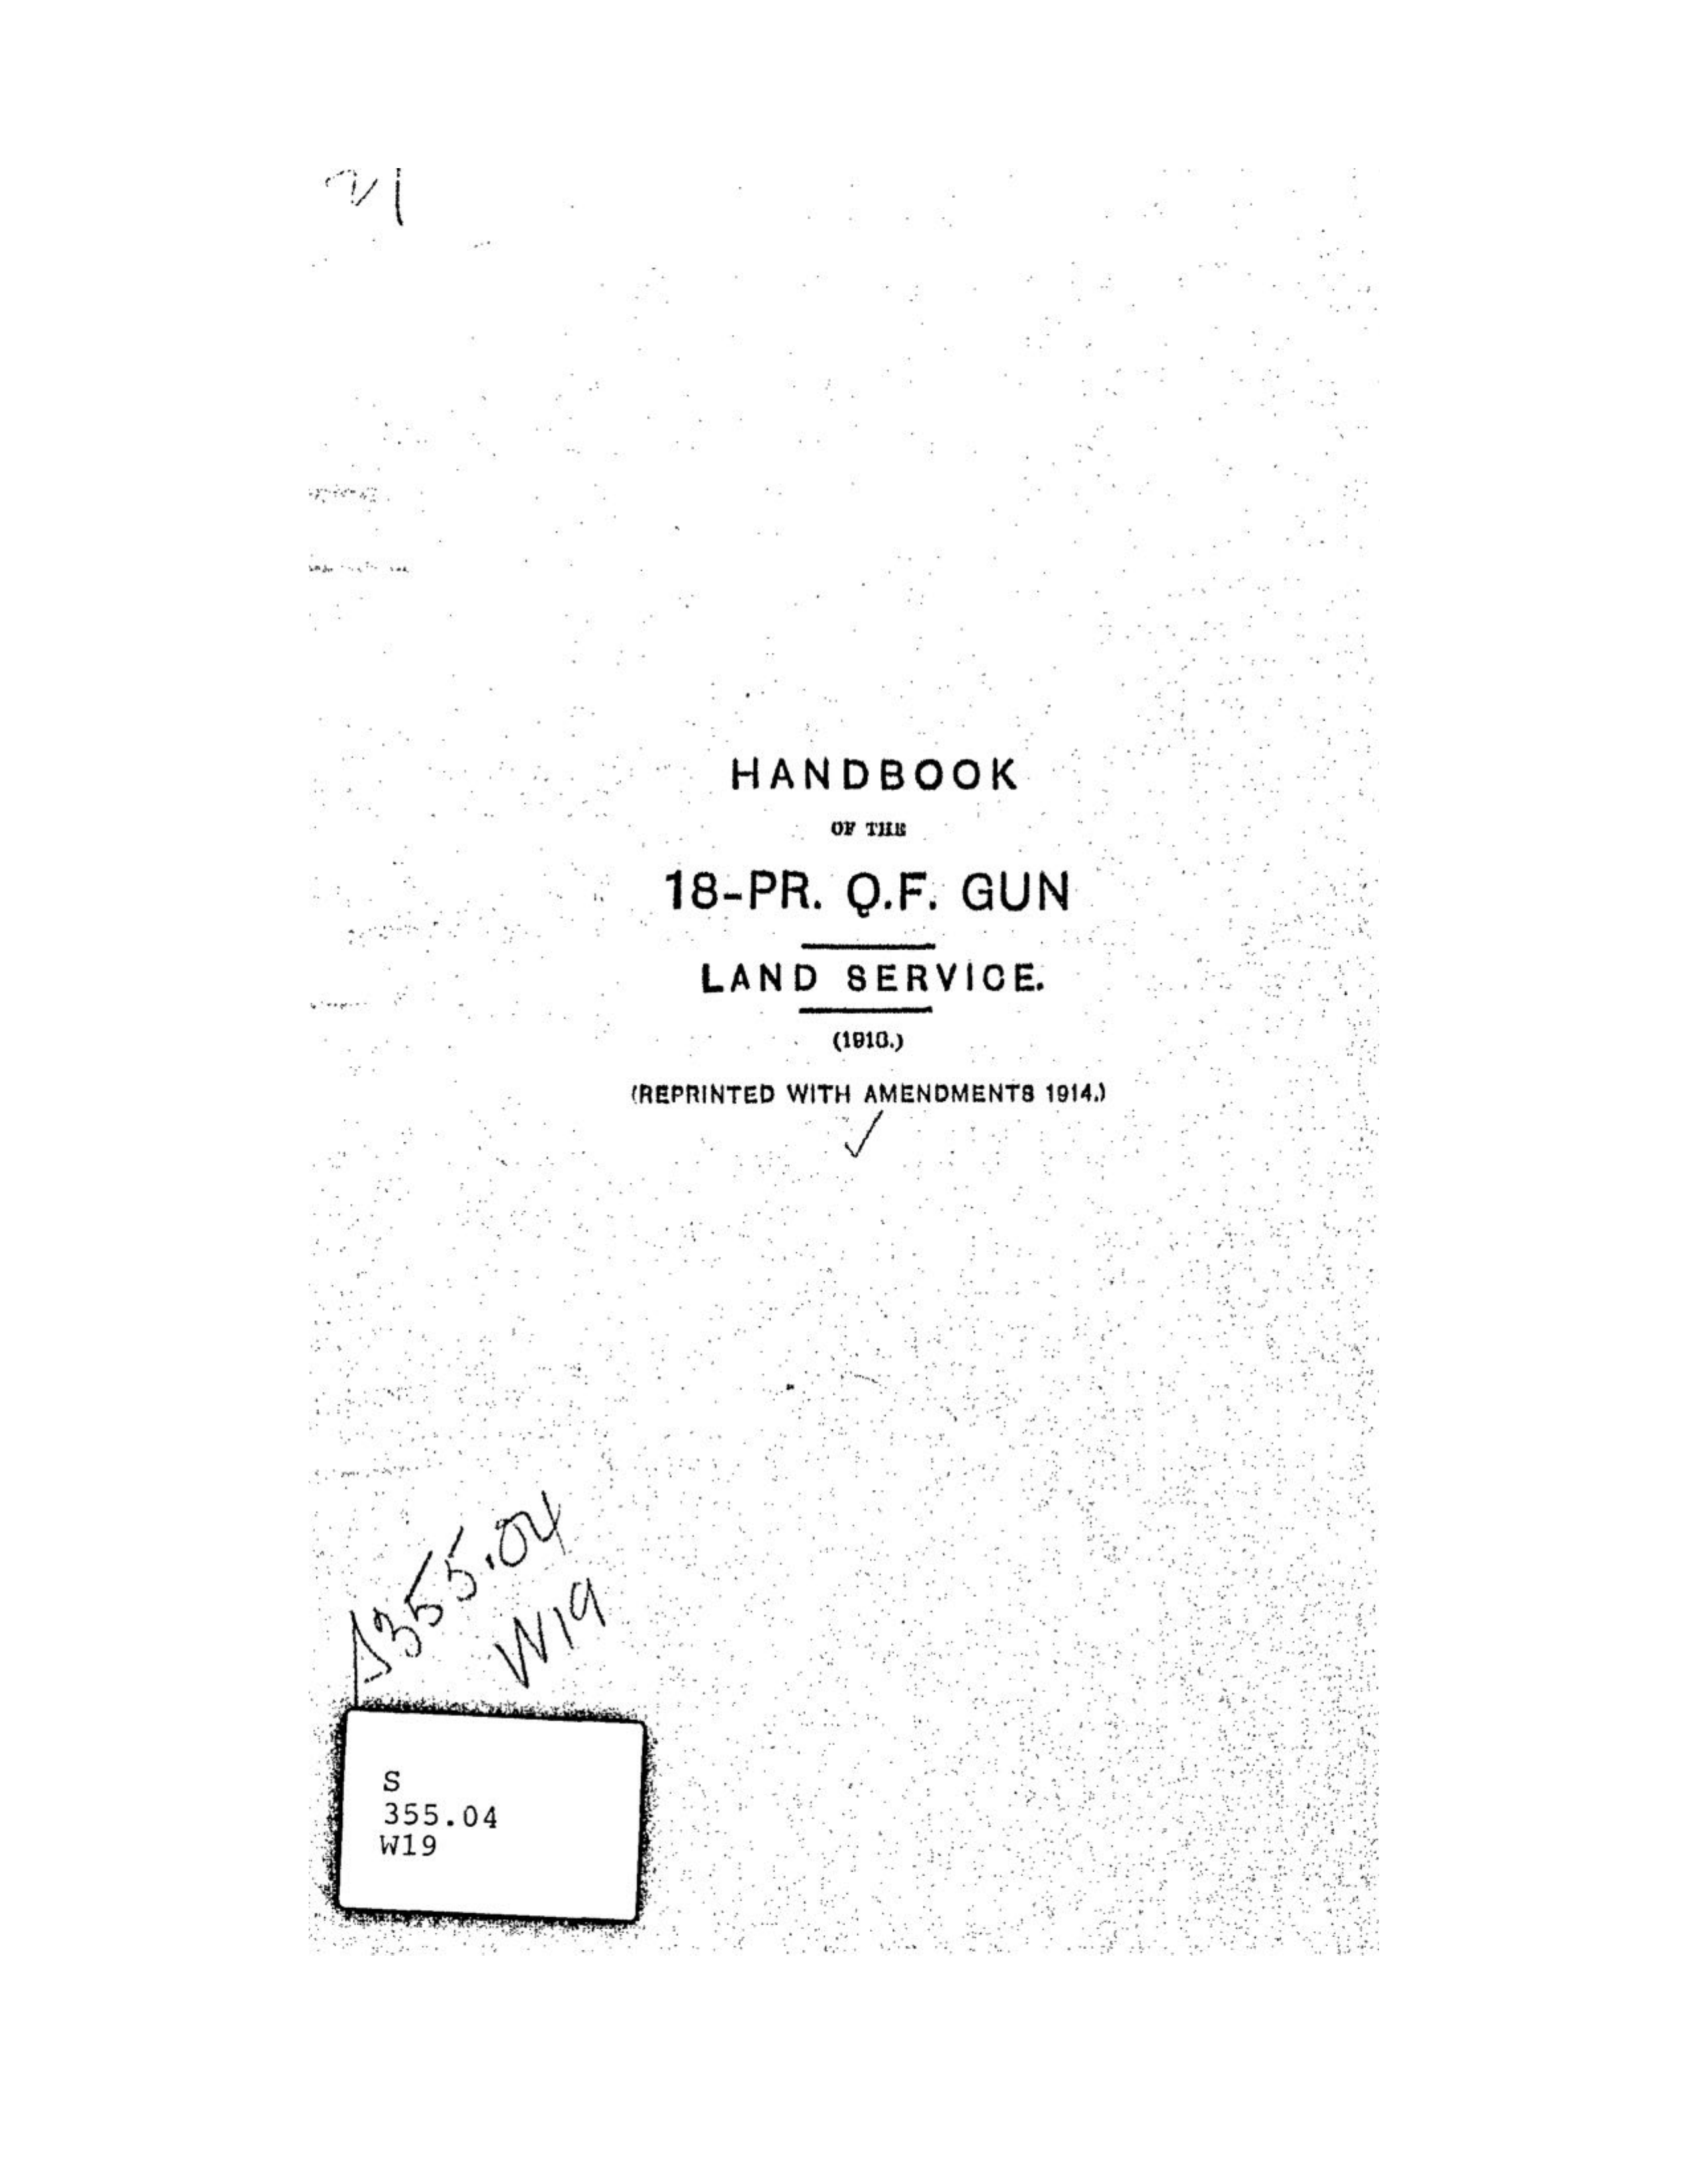 21
HANDBOOK
OF THE
18-PR. Q.F. GUN
LAND SERVICE.
(1913.)
(REPRINTED WITH AMENDMENTS 1914.)
S355.04
W19
S
355.04
W19